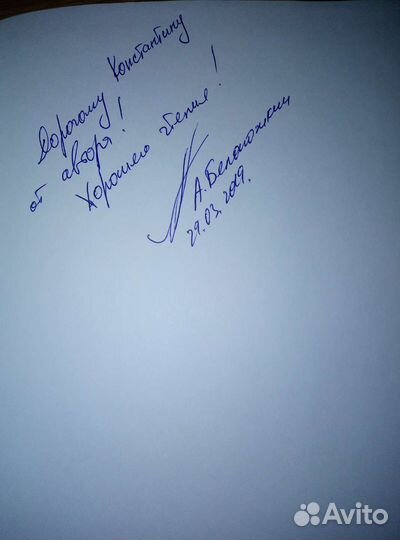 Дорогому Константину
от автора!
Хорошего чтения!
А. Белоножкин
29.03.2019.
Avito